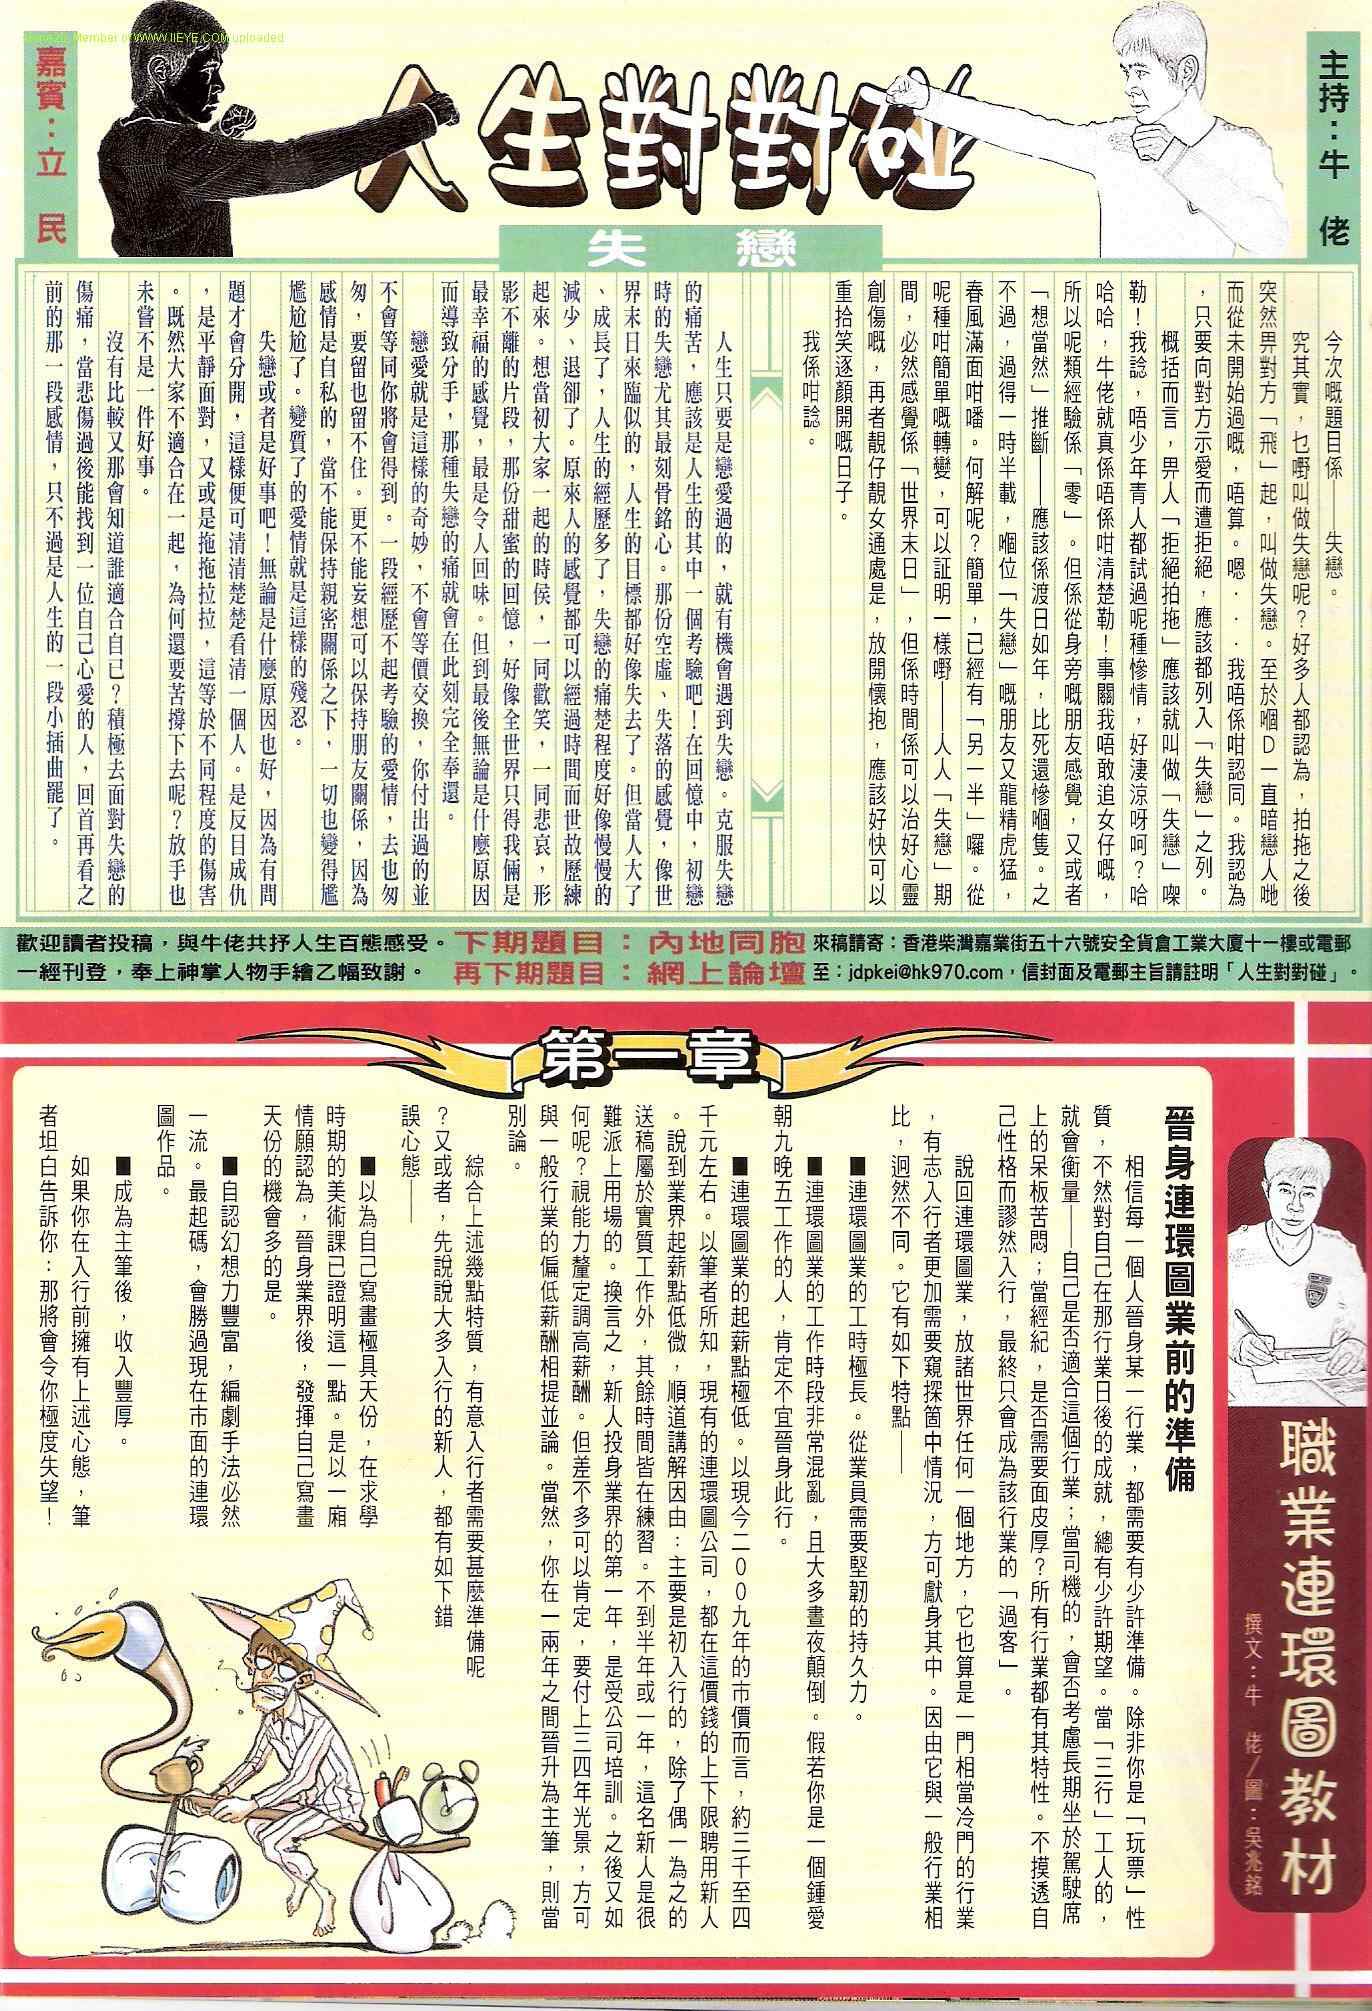 Member of WWW.IIEYE.COM uploaded
主持：牛　佬
人生對對碰
嘉賓：立　民
失　戀
今次嘅題目係——失戀。
究其實，乜嘢叫做失戀呢？好多人都認為，拍拖之後
突然畀對方「飛」起，叫做失戀。至於嗰D一直暗戀人哋
而從未開始過嘅，唔算。嗯...我唔係咁認同。我認為
，只要向對方示愛而遭拒絕，應該都列入「失戀」之列。
概括而言，畀人「拒絕拍拖」應該就叫做「失戀」㗎
勒！我諗，唔少年青人都試過呢種慘情，好淒涼呀呵？哈
哈哈，牛佬就真係唔係咁清楚勒！事關我唔敢追女仔嘅，
所以呢類經驗係「零」。但係從身旁嘅朋友感覺，又或者
「想當然」推斷——應該係渡日如年，比死還慘嗰隻。之
不過，過得一時半載，嗰位「失戀」嘅朋友又龍精虎猛，
春風滿面咁噃。何解呢？簡單，已經有「另一半」囉。從
呢種咁簡單嘅轉變，可以証明一樣嘢——人人「失戀」期
間，必然感覺係「世界末日」，但係時間係可以治好心靈
創傷嘅，再者靚仔靚女通處是，放開懷抱，應該好快可以
重拾笑逐顏開嘅日子。
我係咁諗。
人生只要是戀愛過的，就有機會遇到失戀。克服失戀
的痛苦，應該是人生的其中一個考驗吧！在回憶中，初戀
時的失戀尤其最刻骨銘心。那份空虛、失落的感覺，像世
界末日來臨似的，人生的目標都好像失去了。但當人大了
、成長了，人生的經歷多了，失戀的痛楚程度好像慢慢的
減少、退卻了。原來人的感覺都可以經過時間而世故歷練
起來。想當初大家一起的時侯，一同歡笑，一同悲哀，形
影不離的片段，那份甜蜜的回憶，好像全世界只得我倆是
最幸福的感覺，最是令人回味。但到最後無論是什麼原因
而導致分手，那種失戀的痛就會在此刻完全奉還。
戀愛就是這樣的奇妙，不會等價交換，你付出過的並
不會等同你將會得到。一段經歷不起考驗的愛情，去也匆
匆，要留也留不住。更不能妄想可以保持朋友關係，因為
感情是自私的，當不能保持親密關係之下，一切也變得尷
尷尬尬了。變質了的愛情就是這樣的殘忍。
失戀或者是好事吧！無論是什麼原因也好，因為有問
題才會分開，這樣便可清清楚楚看清一個人。是反目成仇
，是平靜面對，又或是拖拖拉拉，這等於不同程度的傷害
。既然大家不適合在一起，為何還要苦撐下去呢？放手也
未嘗不是一件好事。
沒有比較又那會知道誰適合自己？積極去面對失戀的
傷痛，當悲傷過後能找到一位自己心愛的人，回首再看之
前的那一段感情，只不過是人生的一段小插曲罷了。
歡迎讀者投稿，與牛佬共抒人生百態感受。
一經刊登，奉上神掌人物手繪乙幅致謝。
下期題目：內地同胞
再下期題目：網上論壇
來稿請寄：香港柴灣嘉業街五十六號安全貨倉工業大廈十一樓或電郵
至：jdpkei@hk970.com，信封面及電郵主旨請註明「人生對對碰」。
職業連環圖教材
撰文：牛　佬／圖：吳兆銘
第一章
晉身連環圖業前的準備
相信每一個人晉身某一行業，都需要有少許準備。除非你是「玩票」性
質，不然對自己在那行業日後的成就，總有少許期望。當「三行」工人的，
就會衡量——自己是否適合這個行業；當司機的，會否考慮長期坐於駕駛席
上的呆板苦悶；當經紀，是否需要面皮厚？所有行業都有其特性。不摸透自
己性格而謬然入行，最終只會成為該行業的「過客」。
說回連環圖業，放諸世界任何一個地方，它也算是一門相當冷門的行業
，有志入行者更加需要窺探箇中情況，方可獻身其中。因由它與一般行業相
比，迥然不同。它有如下特點——
■連環圖業的工時極長。從業員需要堅韌的持久力。
■連環圖業的工作時段非常混亂，且大多晝夜顛倒。假若你是一個鍾愛
朝九晚五工作的人，肯定不宜晉身此行。
■連環圖業的起薪點極低。以現今二００九年的市價而言，約三千至四
千元左右。以筆者所知，現有的連環圖公司，都在這價錢的上下限聘用新人
。說到業界起薪點低微，順道講解因由：主要是初入行的，除了偶一為之的
送稿屬於實質工作外，其餘時間皆在練習。不到半年或一年，這名新人是很
難派上用場的。換言之，新人投身業界的第一年，是受公司培訓。之後又如
何呢？視能力釐定調高薪酬。但差不多可以肯定，要付上三四年光景，方可
與一般行業的偏低薪酬相提並論。當然，你在一兩年之間晉升為主筆，則當
別論。
綜合上述幾點特質，有意入行者需要甚麼準備呢
？又或者，先說說大多入行的新人，都有如下錯
誤心態——
■以為自己寫畫極具天份，在求學
時期的美術課已證明這一點。是以一廂
情願認為，晉身業界後，發揮自己寫畫
天份的機會多的是。
■自認幻想力豐富，編劇手法必然
一流。最起碼，會勝過現在市面的連環
圖作品。
■成為主筆後，收入豐厚。
如果你在入行前擁有上述心態，筆
者坦白告訴你：那將會令你極度失望！